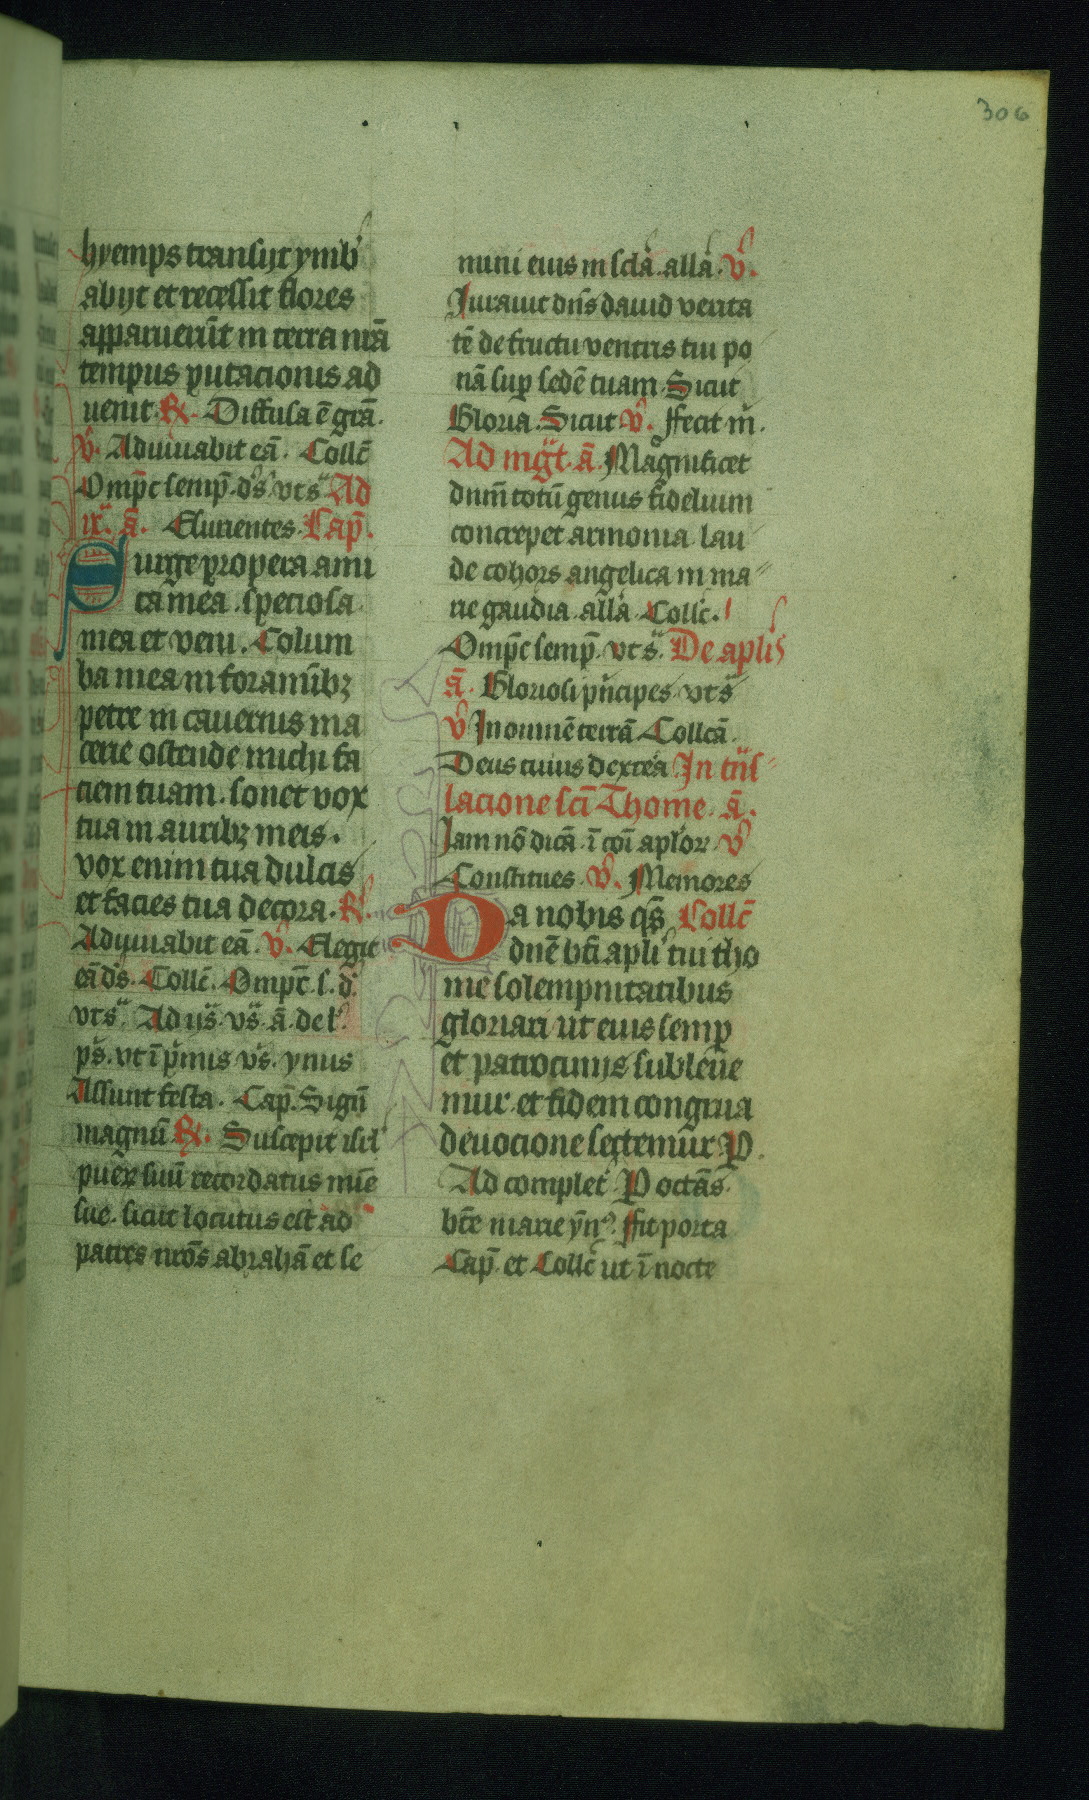 306
hyemps transijt ymb᷒
abijt et recessit flores
apparuerūt in terra nr̄a
tempus putacionis ad
uenit. R̸. Diffusa ē gra᷒.
v̾. Adiuuabit eā. Collc̄
Omp̄c semp̄. d᷒s. vt s᷒. Ad
ix᷒. a᷒. Esurientes. Cap̄.
Surge propera ami
ca mea. speciosa
mea et veni. Colum
ba mea in foraminibꝫ
petre in cauernis ma
cerie ostende michi fa
ciem tuam. sonet vox
tua in auribꝫ meis.
vox enim tua dulcis
et facies tua decora. R̸.
Adiuuabit eā. v̾. Elegit
eā d᷒s. Collc̄. Omp̄c. s. d᷒.
vt s᷒. Ad ij᷒s. vs᷒. ā. de l᷒.
ps̄. vt ī p̄mis vs̄. ynus
Assunt festa. Cap̄. Signū
magnū R̸. Suscepit isr̄l
puerū suū recordatus mīe
sue. sicut locutus est ad
patres nr̄os abrahā et se
mini eius in scl̄a. all̄a. v̾.
Iurauit dn̄s dauid verita
tē de fructu ventris tui po
nā suꝑ sedē tuam. Sicut
Gloria. Sicut v̾. Ffecit m᷒.
Ad mḡt. ā. Magnificet
dnm̄ totū genus fidelium
concrepet armonia lau
de cohors angelica in ma
rie gaudia. all̄a. Collc̄.
Omp̄c semp̄. vt s᷒. De apl̄is
ā. Gloriosi pͥncipes. vt s᷒
v̾ In omnē terrā Collcā.
Deus cuius dextera In trās
lacione sc̄i Thome. ā.
Iam nō dicā. ī cōi apl̄or. v̾
Constitues. v̾. Memores
Da nobis qs̄ Collc̄
dnē bt̄i apl̄i tui tho
me solempnitatibus
gloriari ut eius semꝑ
et patrocinijs subleue
mur. et fidem congrua
deuocione sectemur. P̱.
Ad complet᷒. P octās.
bt̄e marie yn̄. Ffit porta
Cap̄. et Collc̄ ut ī nocte